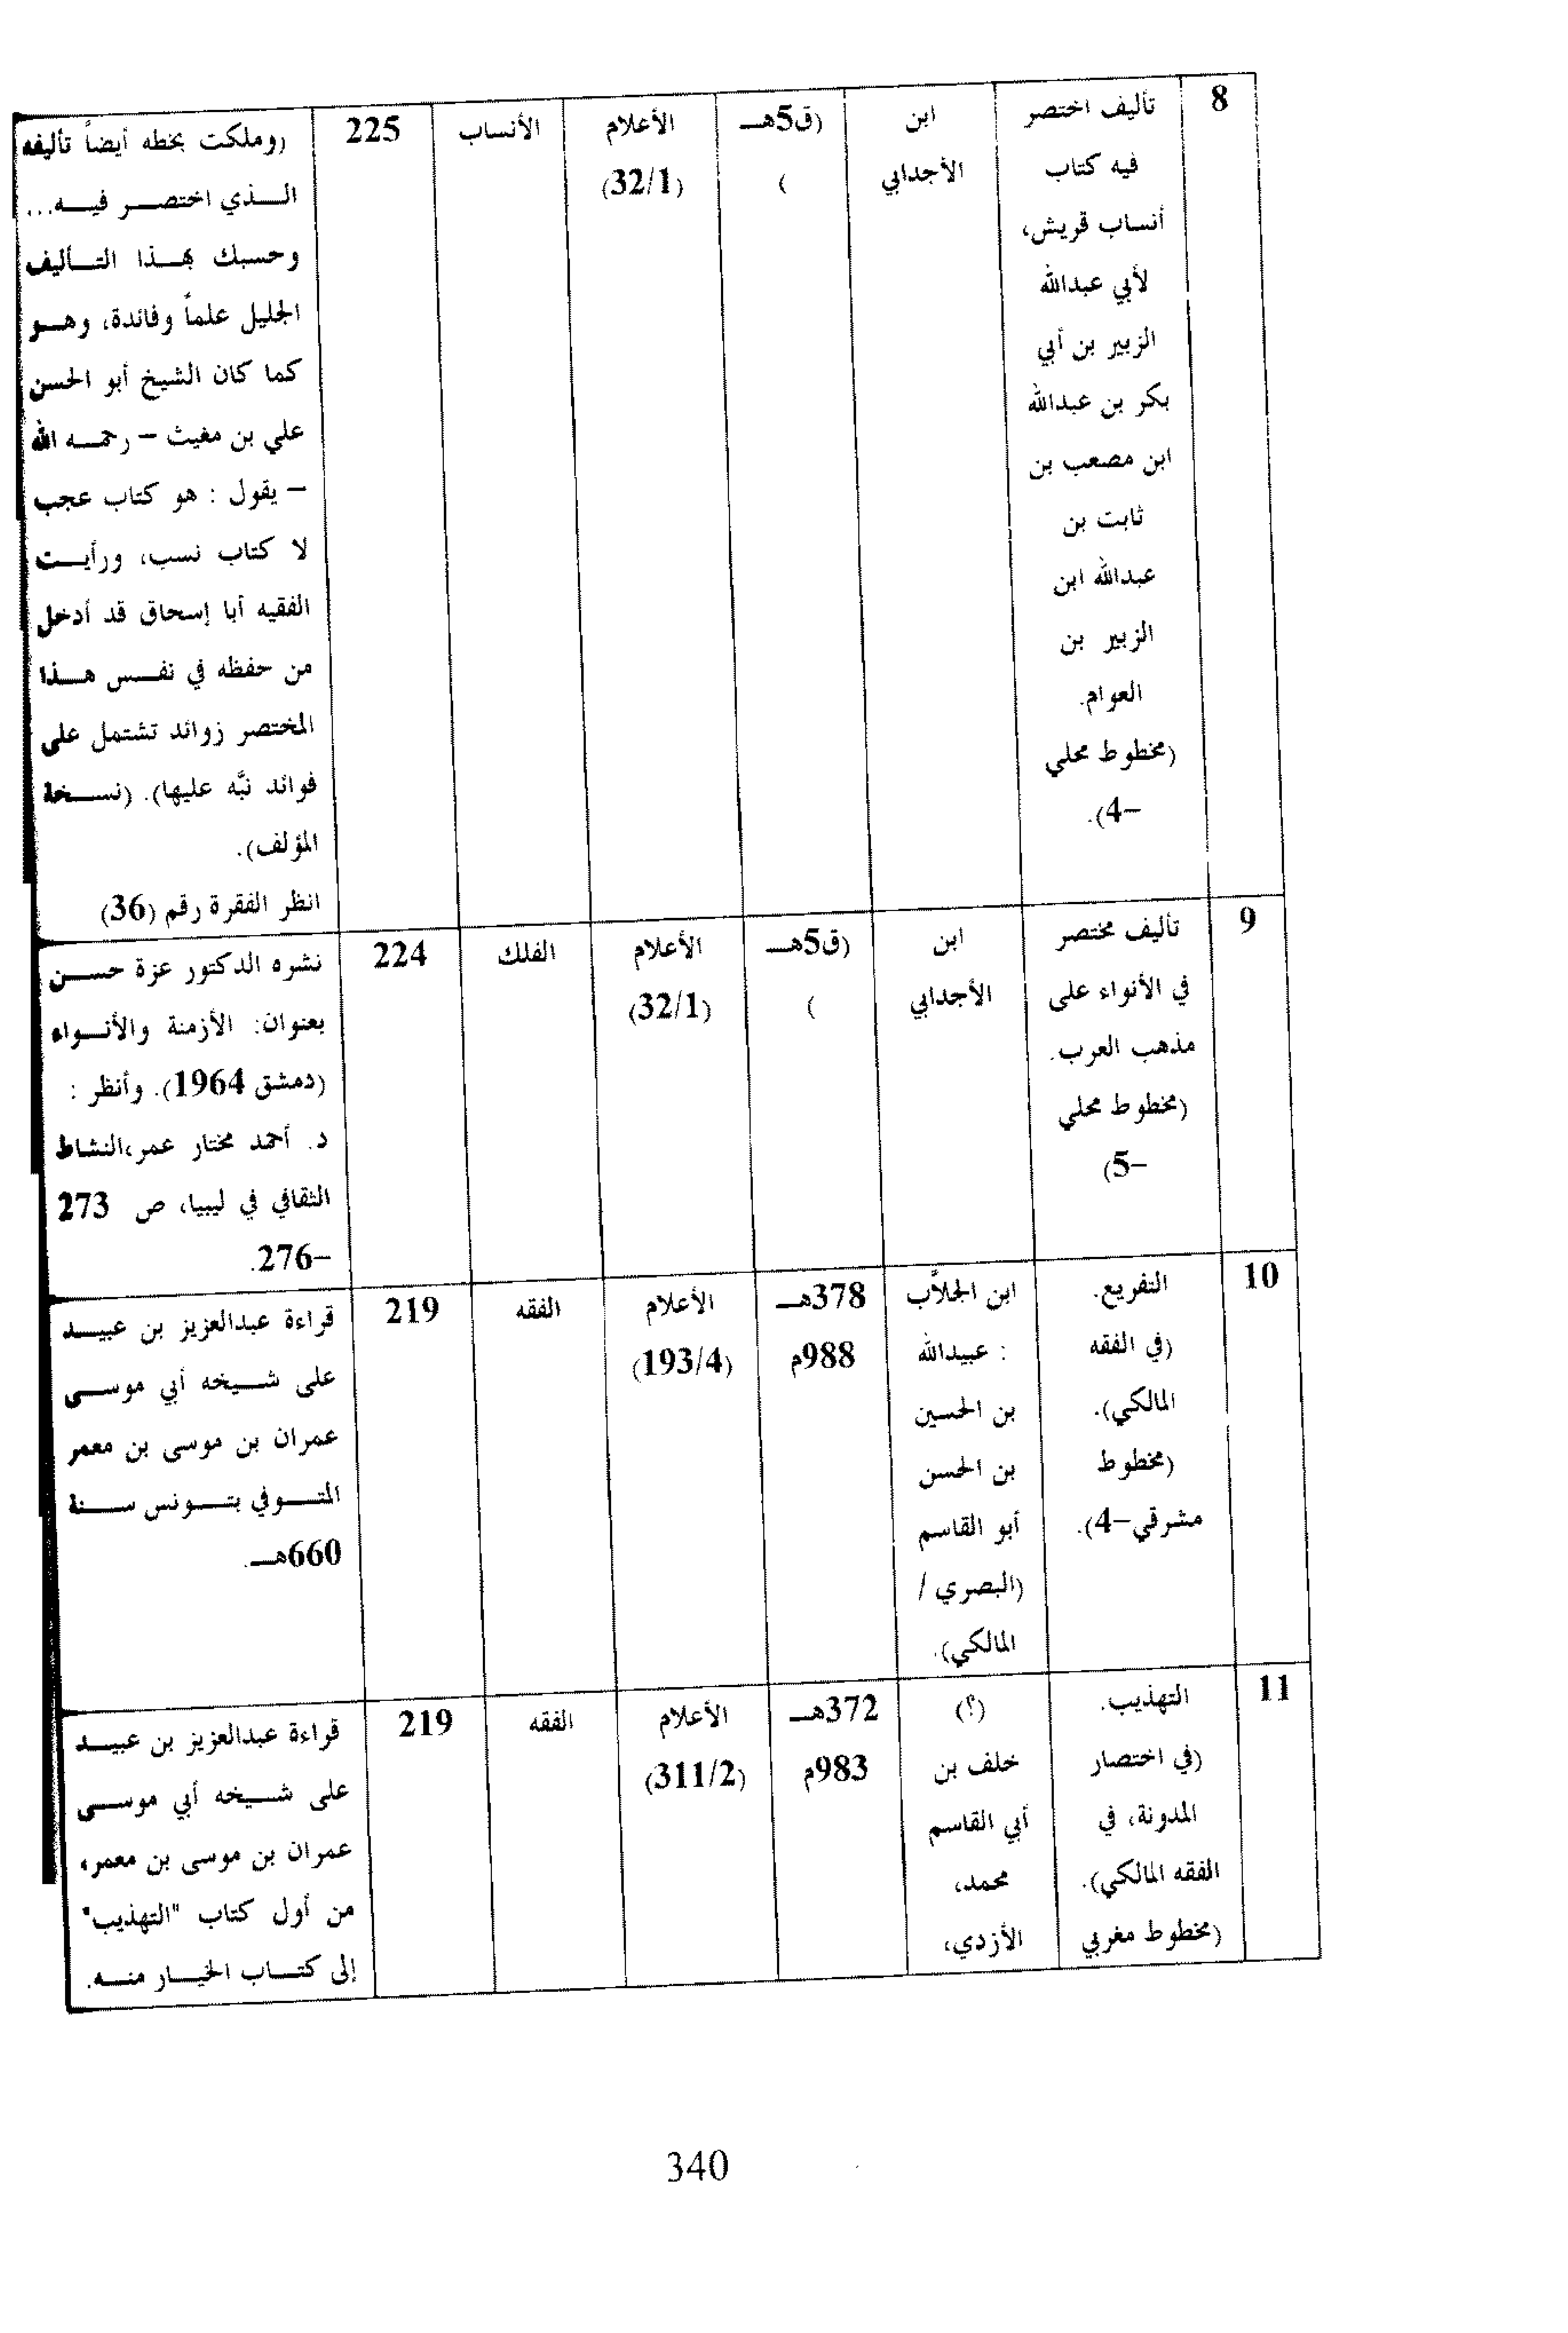 8
تأليف اختصر
فيه كتاب
أنساب قريش،
لأبي عبدالله
الزبير بن أبي
بكر بن عبدالله
ابن مصعب بن
ثابت بن
عبدالله ابن
الزبير بن
العوام.
(مخطوط محلي
–4).
ابن
الأجدابي
(ق5هــ
)
الأعلام
(32/1)
الأنساب
225
(وملكت بخطه أيضاً تأليفه
الــذي اختصــر فيــه...
وحسبك بهــذا التــأليف
الجليل علماً وفائدة، وهــو
كما كان الشيخ أبو الحسن
علي بن مغيث – رحمــه الله
– يقول : هو كتاب عجب
لا كتاب نسب، ورأيــت
الفقيه أبا إسحاق قد أدخل
من حفظه في نفــس هــذا
المختصر زوائد تشتمل على
فوائد نبَّه عليها). (نســخة
المؤلف).
انظر الفقرة رقم (36)
9
تأليف مختصر
في الأنواء على
مذهب العرب.
(مخطوط محلي
–5)
ابن
الأجدابي
(ق5هــ
)
الأعلام
(32/1)
الفلك
224
نشره الدكتور عزة حســن
بعنوان: الأزمنة والأنــواء
(دمشق 1964). وأنظر :
د. أحمد مختار عمر،النشاط
الثقافي في ليبيا، ص 273
–276.
10
التفريع.
(في الفقه
المالكي).
(مخطوط
مشرقي–4).
ابن الجلاَّب
: عبيدالله
بن الحسين
بن الحسن
أبو القاسم
(البصري /
المالكي).
378هــ
988م
الأعلام
(193/4)
الفقه
219
قراءة عبدالعزيز بن عبيــد
على شــيخه أبي موســى
عمران بن موسى بن معمر
المتــوفي بتــونس ســنة
660هــ.
11
التهذيب.
(في اختصار
المدونة، في
الفقه المالكي).
(مخطوط مغربي
(؟)
خلف بن
أبي القاسم
محمد،
الأزدي،
372هــ
983م
الأعلام
(311/2)
الفقه
219
قراءة عبدالعزيز بن عبيــد
على شــيخه أبي موســى
عمران بن موسى بن معمر،
من أول كتاب "التهذيب"
إلى كتــاب الخيــار منــه.
340